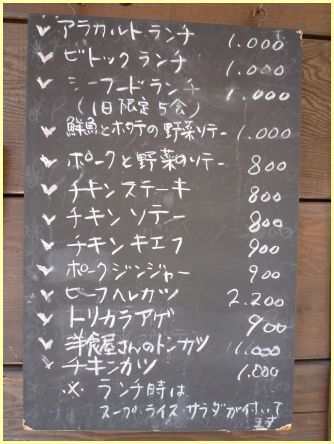 アラカルトランチ 1.000
ビトックランチ 1.000
シーフードランチ 1.000
(1日限定5食)
鮮魚とホタテの野菜ソテー 1.000
ポークと野菜のソテー 800
チキンステーキ 800
チキンソテー 800
チキンキエフ 900
ポークジンジャー 900
ビーフヘレカツ 2.200
トリカラアゲ 900
洋食屋さんのトンカツ 1.000
チキンカツ 1.000
※ ランチ時は
スープ.ライス.サラダが付いて
ます